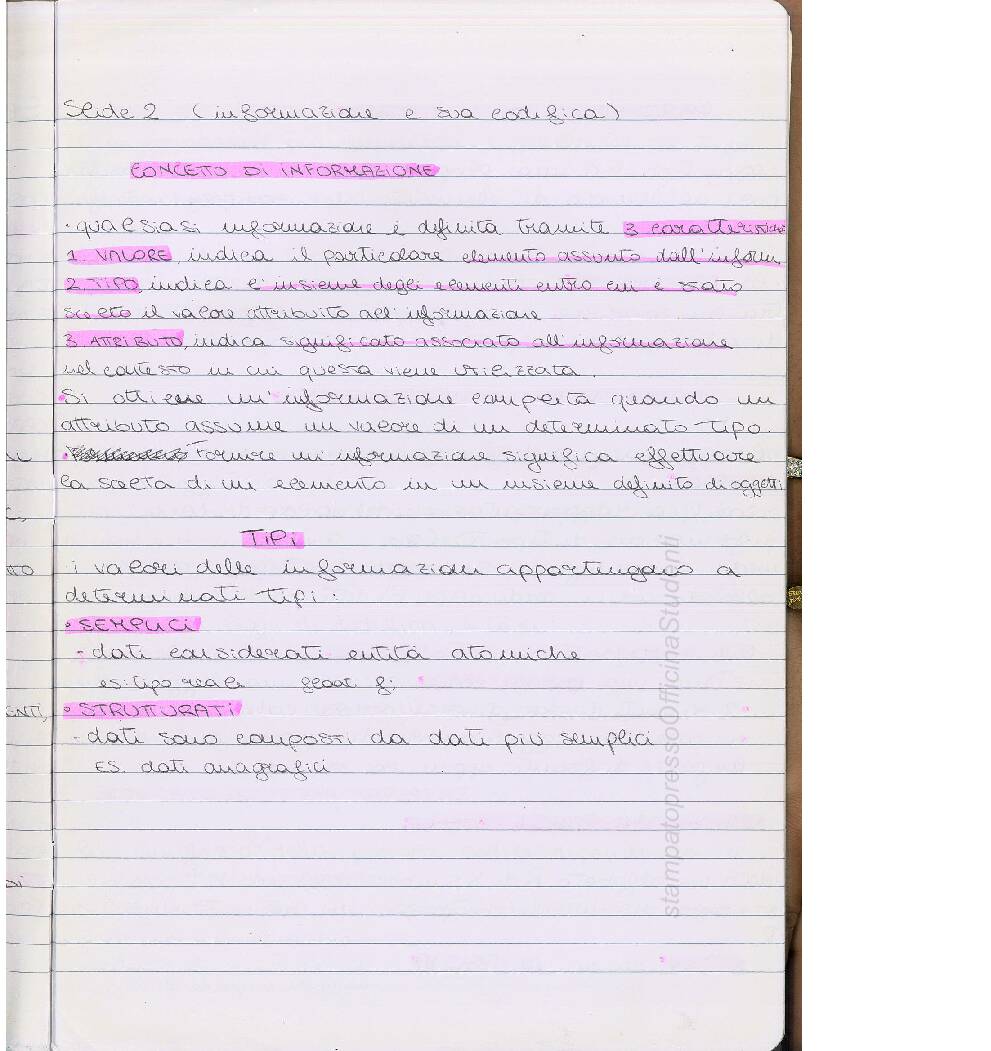 Slide 2 (informazione e sua codifica)
CONCETTO DI INFORMAZIONE
· qualsiasi informazione è definita tramite 3 caratteristiche
1. VALORE, indica il particolare elemento assunto dall'inform
2. TIPO, indica l'insieme degli elementi entro cui è stato
scelto il valore attribuito all'informazione
3. ATTRIBUTO, indica significato associato all'informazione
nel contesto in cui questa viene utilizzata.
Si ottiene un'informazione completa quando un
attributo assume un valore di un determinato tipo.
· Fornire un'informazione significa effettuare
la scelta di un elemento in un insieme definito di oggetti
TIPI
i valori delle informazioni appartengano a
determinati tipi:
• SEMPLICI
- dati considerati entità atomiche
es: tipo reale float f;
• STRUTTURATI
- dati sono composti da dati più semplici
ES. dati anagrafici
C,
TTO
ENTI,
Di
stampatopressoOfficinaStudenti